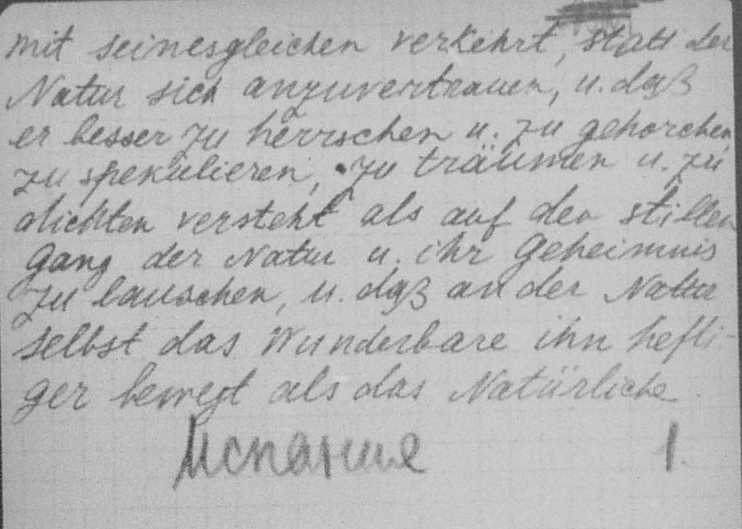 mit seinesgleichen verkehrt, statt der
Natur sich anzuvertrauen, u. daß
er besser zu herrschen u. zu gehorchen,
zu spekulieren, zu träumen u. zu
dichten versteht als auf den stillen
Gang der Natur u. ihr Geheimnis
zu lauschen, u. daß an der Natur
selbst das Wunderbare ihn hefti-
ger bewegt als das Natürliche.
1.